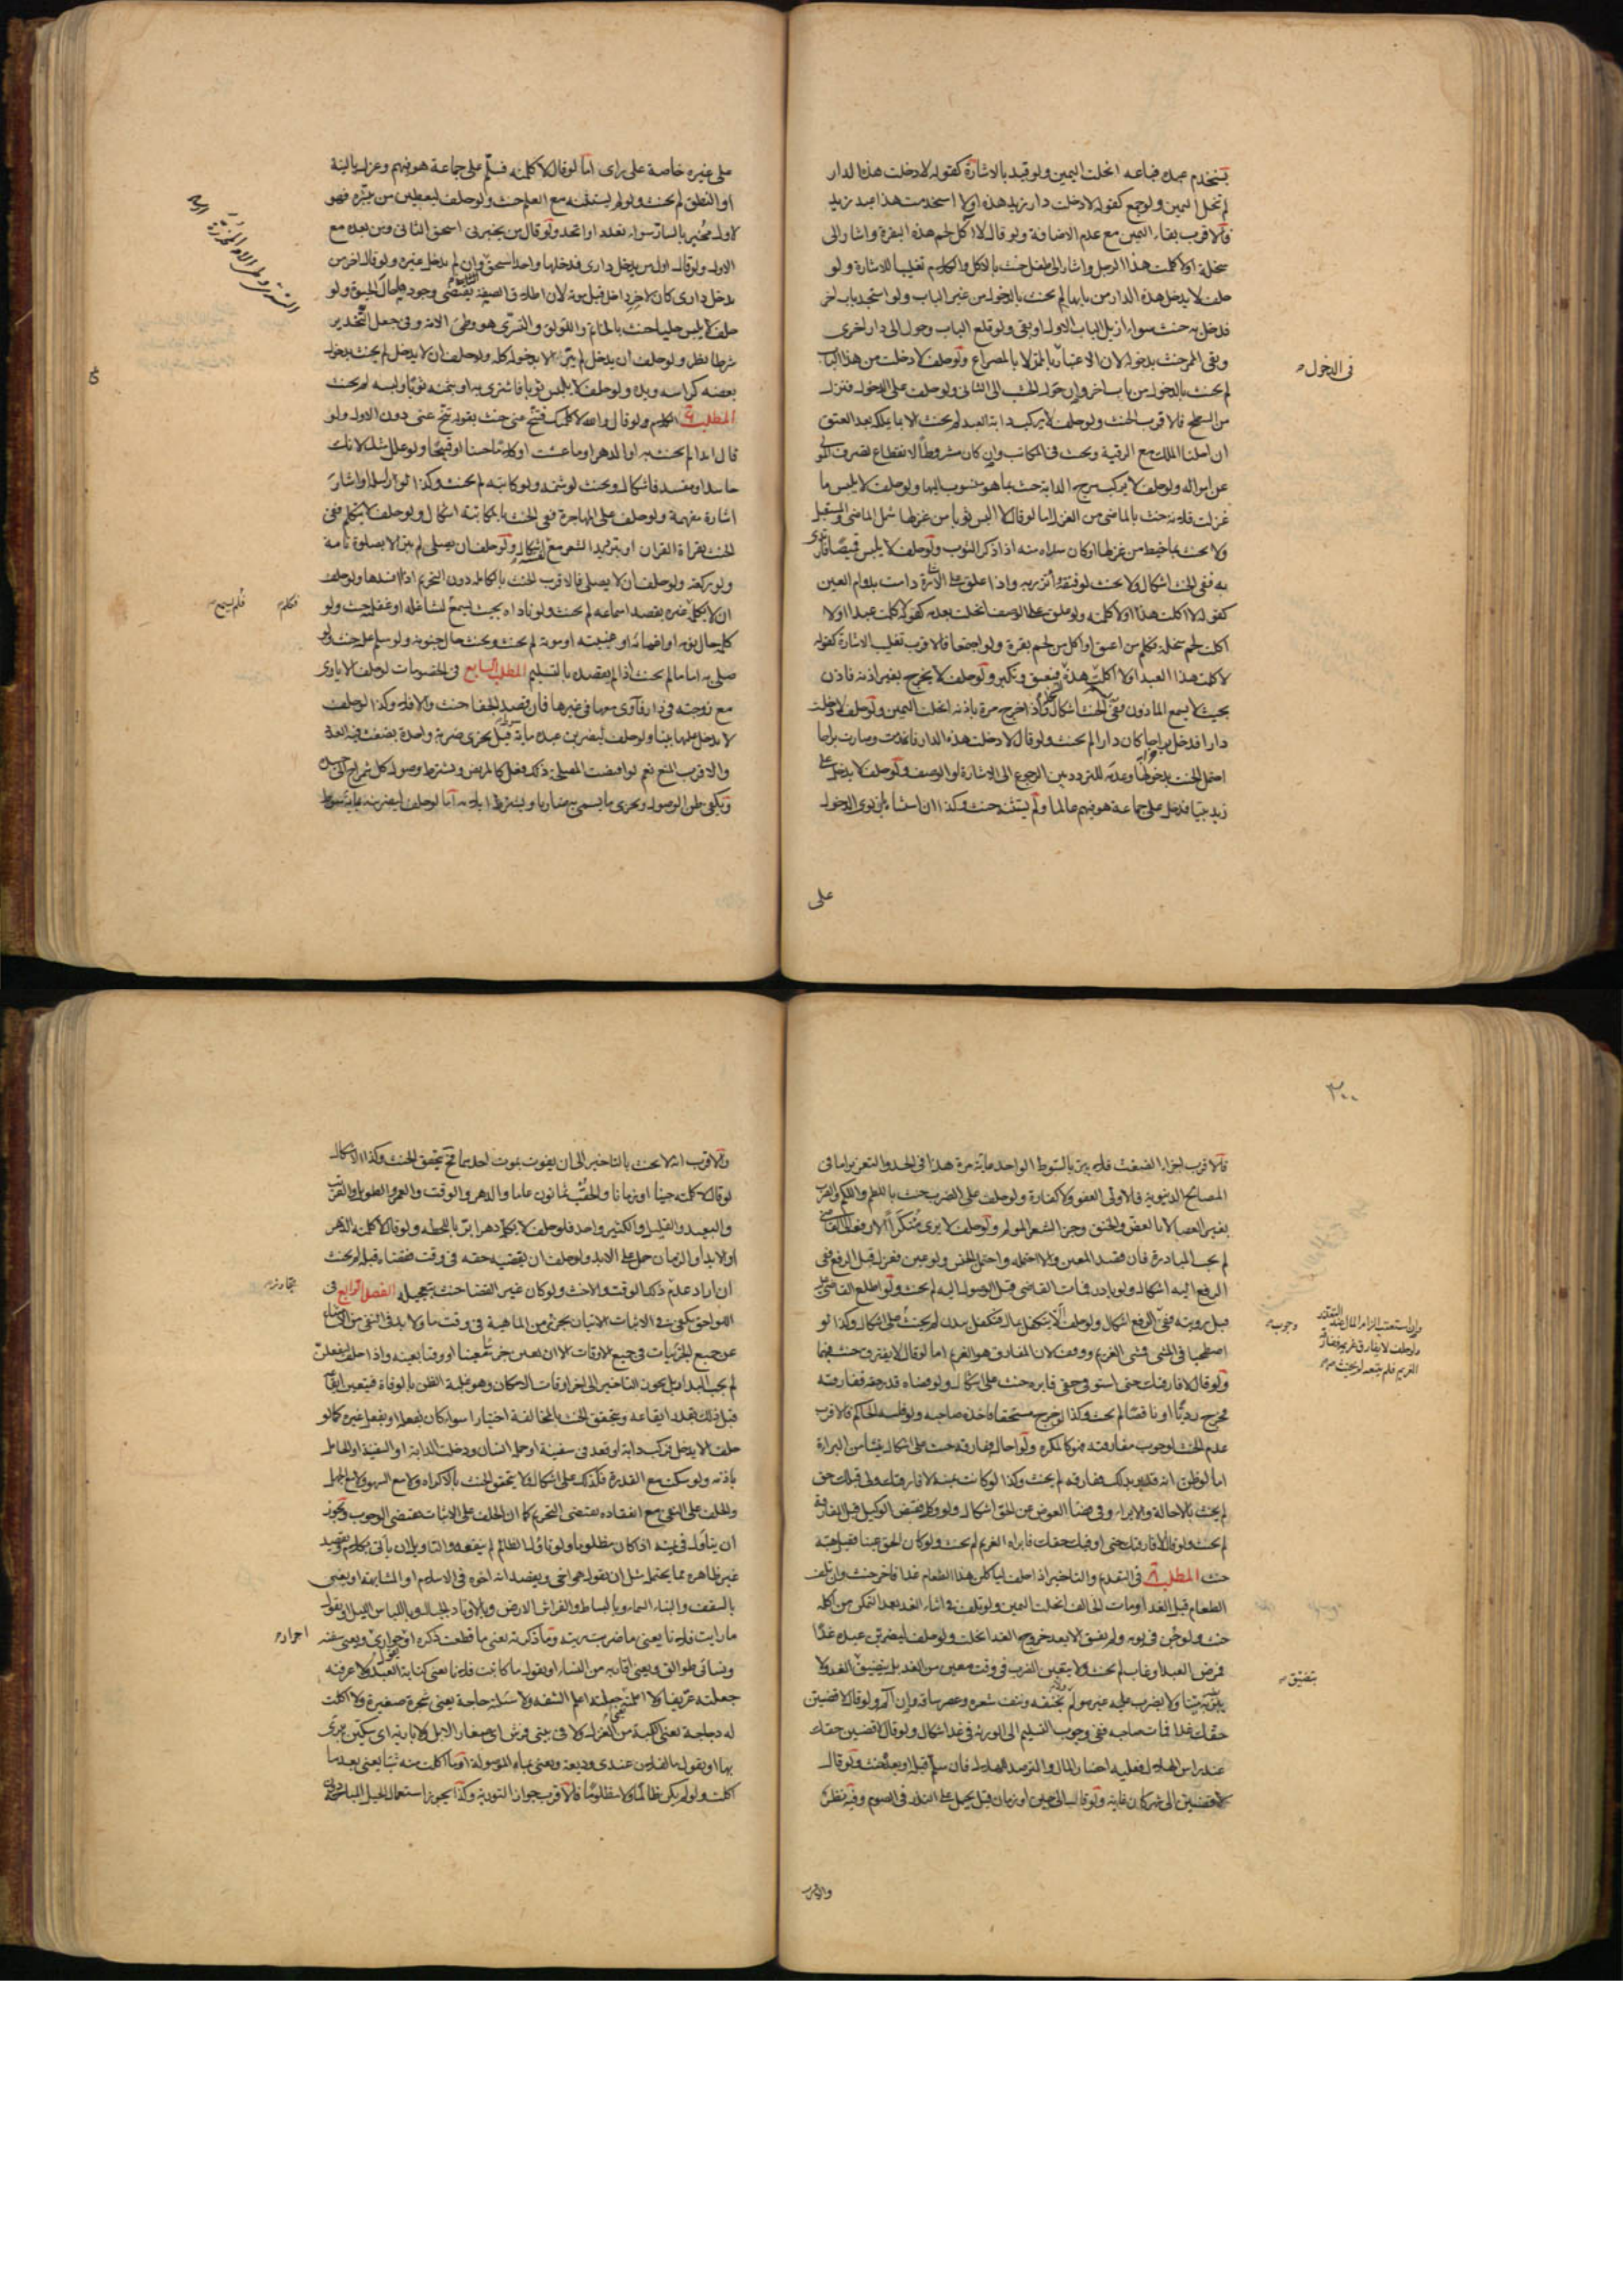 يستخدم عبده فباعه انحلت اليمين ولو قيد بالاشارة كقوله لا دخلت هذا الدار
لم تنحل اليمين ولو جمع كقوله لا دخلت دار زيد هذه او لا استخدمت هذا عبد زيد
فالاقرب بقاء اليمين مع عدم الاضافة ولو قال لا آكل لحم هذه البقرة واشار الى
سخلة او لا كلمت هذا الرجل واشار الى طفل حنث بالاكل والكلام تغليبا للاشارة ولو
حلف لا يدخل هذه الدار من بابها لم يحنث بالدخول من غير الباب ولو استجد باب آخر
فدخل به حنث سواء ازيل الباب الاول او بقى ولو قلع الباب وحول الى دار اخرى
وبقى الممر حنث بدخوله لان الاعتبار بالممر لا بالمصراع ولو حلف لا دخلت من هذا الباب
لم يحنث بالدخول من باب آخر وان حول الخشب الى الثانى ولو حلف على الدخول فنزل
فى الدخول
من السطح فالاقرب الحنث ولو حلف لا يركب دابة العبد لم يحنث الا بما يملكه بعد العتق
ان احلنا الملك مع الرقية ويحنث فى المكاتب وان كان مشروطا لانقطاع تصرف المولى
عن امواله ولو حلف لا يركب سرج الدابة حنث بما هو منسوب اليها ولو حلف لا يلبس ما
غزلت فلانه حنث بالماضى من الغزل اما لو قال لا البس ثوبا من غزلها شمل الماضى والمستقبل
ولا يحنث بما خيط من غزلها او كان سداه منه اذا ذكر الثوب ولو حلف لا يلبس قميصا فارتدى
به ففى الحنث اشكال ولا يحنث لو فتقه واتزر به واذا علق على الاشارة دامت بدوام العين
كقوله لا اكلت هذا او لا كلمته ولو علق على الوصف انحلت بعدمه كقوله لا كلمت عبدا او لا
اكلت لحم سخلة فكلم من اعتق او اكل من لحم بقرة ولو اجتمعا فالاقرب تغليب الاشارة كقوله
لا كلمت هذا العبد او لا اكلت هذه فيعتق وتكبر ولو حلف لا يخرج بغير اذنه فاذن
بحيث لا يسمع الماذون ففى الحنث اشكال واذا اخرج مرة باذنه انحلت اليمين ولو حلف لا دخلت
دارا فدخل براحا كان دارا لم يحنث ولو قال لا دخلت هذه الدار فانهدمت وصارت براحا
احتمل الحنث بدخولها وعدمه للتردد بين الرجوع الى الاشارة او الوصف ولو حلف لا يدخل على
زيد بيتا فدخل على جماعة هو فيهم عالما ولم يستثنه حنث وكذا ان استثناه بان نوى الدخول
على
على غيره خاصة على راى اما لو قال لا كلمته فسلم على جماعة هو فيهم وعزله بالنية
او النطق لم يحنث ولو لم يستثنه مع العلم حنث ولو حلف ليعطين من يبشره فهو
لاول مخبر بالسار سواء تعدد او اتحد ولو قال من يخبرنى استحق الثانى ومن بعده مع
الاول ولو قال اول من يدخل دارى فدخلها واحد استحق وان لم يدخل غيره ولو قال آخر من
يدخل دارى كان لآخر داخل قبل موته لان اطلاق الصفة يقتضى وجودها حال الحيوة ولو
حلف لا يلبس حليا حنث بالخاتم واللؤلؤ والتسرى هو وطى الامة وفى جعل التخدير
شرطا نظر ولو حلف ان يدخل لم يبر الا بدخوله كله ولو حلف ان لا يدخل لم يحنث بدخول
بعضه كراسه ويده ولو حلف لا يلبس ثوبا فاشترى به او بثمنه ثوبا ولبسه لم يحنث
المطلب الكلام ولو قال والله لا كلمتك فتنح عنى حنث بقوله تنح عنى دون الاول ولو
قال ابدا لم يحنث به او الدهر او ما عشت او كلاما حسنا او قبيحا ولو علل مثل لانك
حاسد او مفسد فاشكال ويحنث لو شتمه ولو كاتبه لم يحنث وكذا لو راسله او اشار
اشارة مفهمة ولو حلف على المهاجرة ففى الحنث بالمكاتبة اشكال ولو حلف لا يتكلم ففى
الحنث بقراءة القران او بترديد الشعر مع نفسه اشكال ولو حلف ان يصلى لم يبر الا بصلوة تامة
ولو ركعة ولو حلف ان لا يصلى فالاقرب الحنث بالكاملة دون التحريم اذا افسدها ولو حلف
ان لا يكلم غيره بقصد اسماعه لم يحنث ولو ناداه بحيث يسمع لتشاغله او غفلته حنث ولو
فكلم
فلم يسمع
كلمه حال نومه او اغمائه او غيبته او موته لم يحنث ويحنث حال جنونه ولو سلم عليه حنث ولو
صلى به اماما لم يحنث اذا لم يقصده بالتسليم المطلب السابع فى الخصومات لو حلف لا ياوى
مع زوجته فى دار فآوى معها فى غيرها فان قصد الجفا حنث والا فلا وكذا لو حلف
لا يدخل عليها بيتا ولو حلف ليضربن عبده مائة قيل يجزى ضربة واحدة بضغث فيه العدد
والاقرب المنع نعم لو اقتضت المصلحة ذلك فعل كالمريض ويشترط وصول كل شمراخ الى جسده
ويكفى ظن الوصول ويجزى ما يسمى به ضاربا ويشترط ايلامه اما لو حلف ليضربنه بماية سوط
٢٠٠
فالاقرب اجزاء الضغث فلا يبر بالسوط الواحد ماية مرة هذا فى الحد والتعزير اما فى
المصالح الدنيوية فالاولى العفو ولا كفارة ولو حلف على الضرب حنث باللطم واللكم والضرب
بغير العصا لا بالعض والخنق وجز الشعر المولم ولو حلف لا يرى منكرا الا رفعه الى القاضى
لم يجب المبادرة فان قصد المعين والا احتمله واحتمل الجنس ولو عين فعزل قبل الرفع ففى
الرفع اليه اشكال ولو بادر فمات القاضى قبل الوصول اليه لم يحنث ولو اطلع القاضى عليه
قبل رويته ففى الرفع اشكال ولو حلف ان لا يتكفل بمال فتكفل ببدن لم يحنث على اشكال وكذا لو
وان استعقب الزام المال عند التعذر
ولو حلف لا يفارق غريمه ففارقه
الغريم فلم يتبعه لم يحنث
وجوب
اصطحبا فى المشى فمشى الغريم ووقف لان المفارق هو الغريم اما لو قال لا يفترق حنث فيهما
ولو قال لا فارقتك حتى استوفى حقى فابراه حنث على اشكال ولو قضاه قدر حقه ففارقه
فخرج رديا او ناقصا لم يحنث وكذا لو خرج مستحقا فاخذه صاحبه ولو فلسه الحاكم فالاقرب
عدم الحنث لوجوب مفارقته فهو كالمكره ولو احاله ففارقه حنث على اشكال ينشأ من البراءة
اما لو ظن انه قد بر بذلك ففارقه لم يحنث وكذا لو كانت يمينه لا فارقتك ولى قبلك حق
لم يحنث بالاحالة والابراء وفى قضاء العوض عن الحق اشكال ولو وكل فقبض الوكيل قبل المفارقة
لم يحنث ولو قال لا فارقتك حتى اوفيك حقك فابراه الغريم لم يحنث ولو كان الحق عينا فقبل هبته
حنث المطلب فى التقديم والتاخير اذا حلف لياكلن هذا الطعام غدا فاخر حنث وان تلف
الطعام قبل الغد او مات الحالف انحلت اليمين ولو تلف فى اثناء الغد بعد التمكن من اكله
حنث ولو جن فى يومه ولم يفق الا بعد خروج الغد انحلت ولو حلف ليضربن عبده غدا
فمرض العبد او غاب لم يحنث ولا يتعين الضرب فى وقت معين من الغد بل يتضيق الغد ولا
بتضيق
يبر بضربه ميتا ولا بضرب غيره ولم يخنقه ونتف شعره وعصر ساقه وان آلم ولو قال لاقضين
حقك غدا فمات صاحبه ففى وجوب التسليم الى الورثة فى غد اشكال ولو قال لاقضين حقك
عند راس الهلال فعليه احضار المال والترصد للهلال فان سلم قبله او بعده حنث ولو قال
لاقضين الى شهر كان غاية ولو قال الى حين او زمان قيل يحمل على النذر فى الصوم وفيه نظر
والاقرب
والاقرب انه لا يحنث بالتاخير الى ان يفوت بموت احدهما فح يتحقق الحنث وكذا الاشكال
لو قال لا كلمته حينا او زمانا والحقب ثمانون عاما والدهر والوقت والعمر والطويل والقريب
والبعيد والقليل والكثير واحد فلو حلف لا يكلمه دهرا بر باللحظة ولو قال لا كلمه الدهر
او الابد او الزمان حمل على الابد ولو حلف ان يقضيه حقه فى وقت فقضاه قبله لم يحنث
ان اراد عدم ذلك الوقت والا حنث ولو كان غير القضا حنث بتعجيله الفصل الرابع فى
اللواحق يكفى فى الاثبات الاتيان بجزئى من الماهية فى وقت ما ولا بد فى النفى من الامتناع
عن جميع الجزئيات فى جميع الاوقات الا ان يعين جزئيا معينا او وقتا بعينه واذا حلف ليفعلن
لم يجب البدار بل يجوز التاخير الى آخر اوقات الامكان وهو غلبة الظن بالوفاة فيتعين ايقاعه
قبل ذلك بقدر ايقاعه ويتحقق الحنث بالمخالفة اختيارا سواء كان بفعله او بفعل غيره كما لو
حلف لا يدخل فركب دابة او قعد فى سفينة او حمله انسان ودخلت الدابة او السفينة او الحامل
باذنه ولو سكت مع القدرة فكذلك على اشكال ولا يتحقق الحنث بالاكراه ولا مع السهو ولا مع الجهل
والحلف على النفى مع انعقاده يقتضى التحريم كما ان الحلف على الاثبات يقتضى الوجوب ويجوز
ان يتاول فى يمينه اذا كان مظلوما ولو تاول الظالم لم ينفعه والتاويل ان ياتى بكلام ويقصد
غير ظاهره مما يحتمله مثل ان يقول هو اخى ويقصد انه اخوه فى الاسلام او المشابهة او يعنى
بالسقف والبناء السماء وبالبساط والفراش الارض وبالاوتاد الجبال وباللباس الليل او يقول
ما رايت فلانا يعنى ما ضربت ريته وما ذكرته يعنى ما قطعت ذكره او جوارى ويعنى سفنه
ونسائى طوالق ويعنى اقاربه من النساء او يقول ما كاتبت فلانا يعنى كتابة العبد ولا عرفته
جعلته عريفا ولا اعلمته جعلته اعلم الشفة ولا سالته حاجة يعنى شجرة صغيرة ولا اكلت
له دجاجة يعنى الكبة من الغزل ولا فى بيتى فرش اى صغار الابل ولا بارية اى سكين يبرى
بها او يقول ما لفلان عندى وديعة ويعنى بما الموصولة او ما اكلت منه شيئا يعنى بعد ما
اكلت ولو لم يكن ظالما ولا مظلوما فالاقرب جواز التورية وكذا يجوز استعمال الحيل المباحة